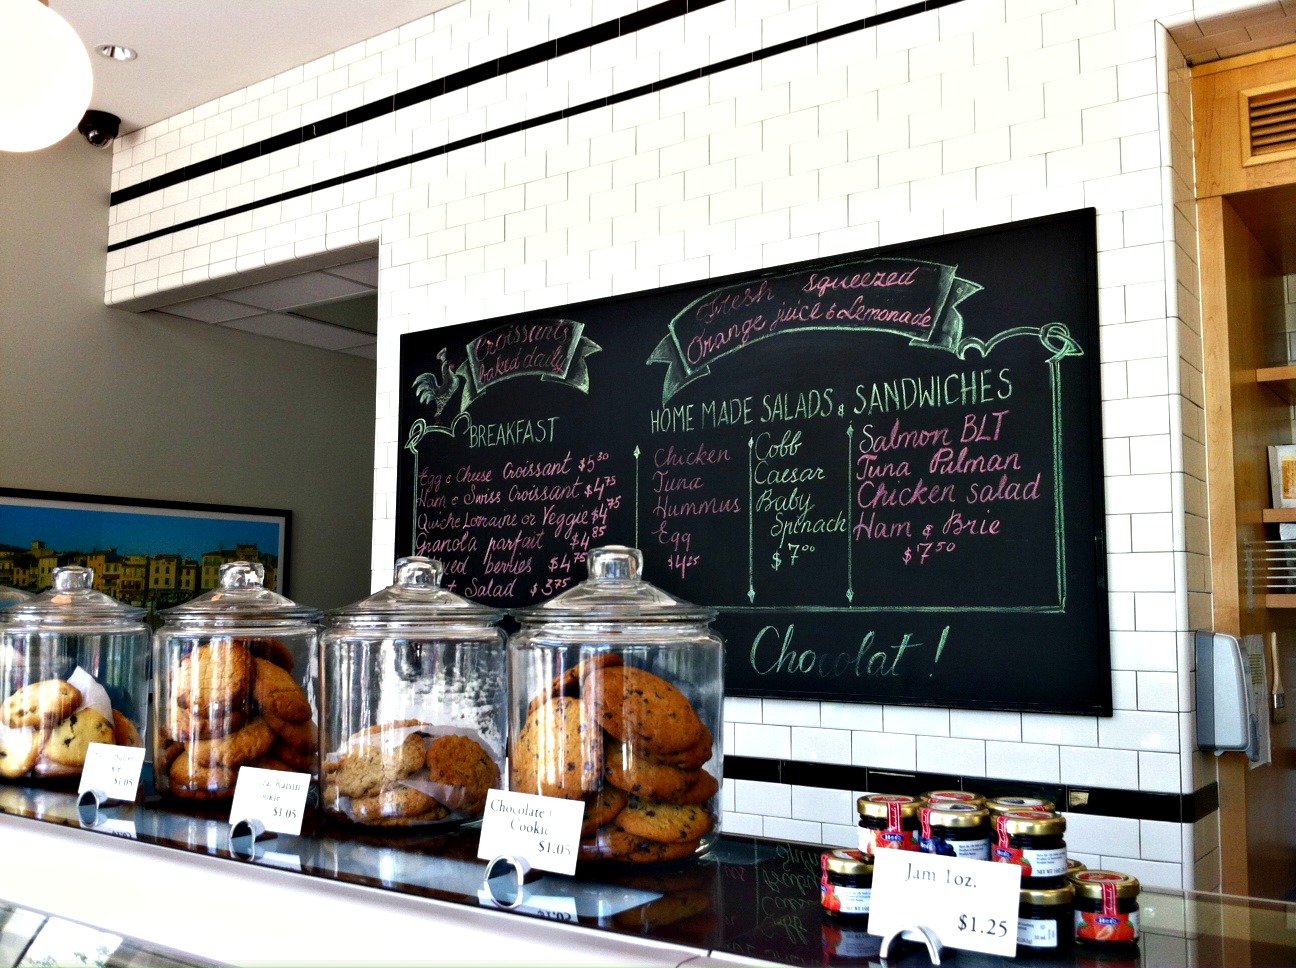 Croissants
baked daily
Fresh squeezed
Orange juice & Lemonade
BREAKFAST
Egg & Cheese Croissant $5³⁰
Ham & Swiss Croissant $4⁷⁵
Quiche Lorraine or Veggie $4⁷⁵
Granola parfait $4⁸⁵
berries $4⁷⁵
Salad $3⁷⁵
HOME MADE SALADS & SANDWICHES
Chicken
Tuna
Hummus
Egg
$4²⁵
Cobb
Caesar
Baby
Spinach
$7⁰⁰
Salmon BLT
Tuna Pulman
Chicken salad
Ham & Brie
$7⁵⁰
Chocolat!
$1.05
Raisin
$1.05
Chocolate
Cookie
$1.05
Jam 1oz.
$1.25